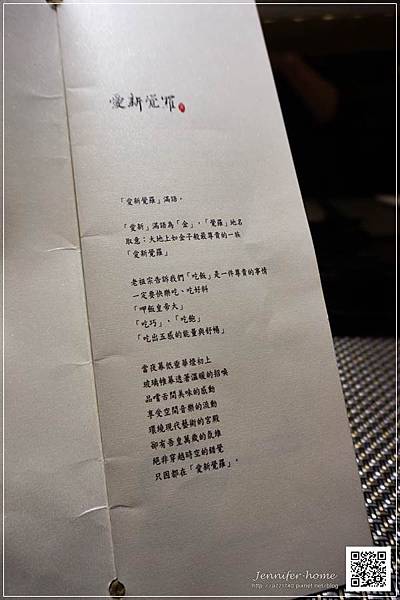 愛新覺羅
「愛新覺羅」滿語。
「愛新」滿語為「金」，「覺羅」地名
取意：大地上如金子般最尊貴的一族
「愛新覺羅」
老祖宗告訴我們「吃飯」是一件尊貴的事情
一定要快樂吃、吃好料
「呷飯皇帝大」
「吃巧」、「吃飽」
「吃出五感的能量與舒暢」
當夜幕低垂華燈初上
玻璃帷幕透著溫暖的招喚
品嚐舌間美味的感動
享受空間音樂的流動
環繞現代藝術的宮殿
卻有吾皇萬歲的氛維
絕非穿越時空的錯覺
只因都在「愛新覺羅」。
Jennifer-home